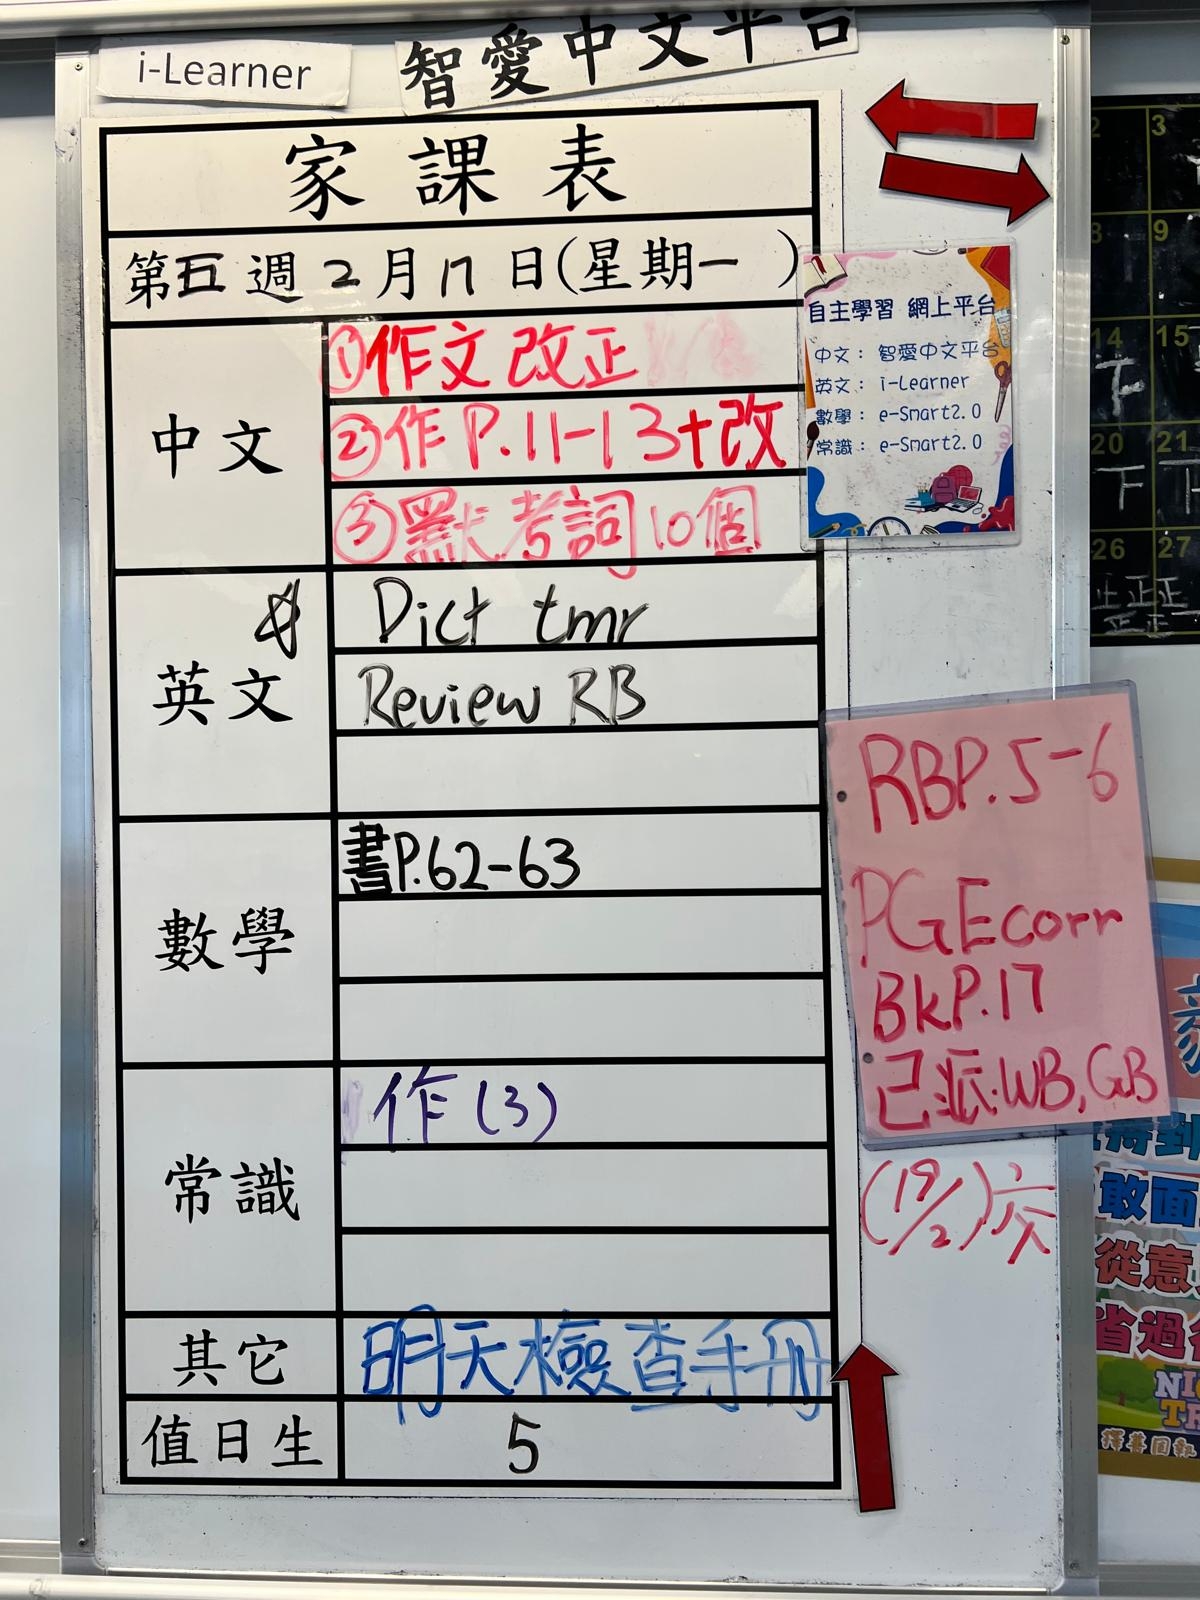 i-Learner
智愛中文平台
家課表
第五週2月17日(星期一 )
中文
①作文改正
②作P.11-13+改
③默考詞10個
英文
Dict tmr
Review RB
數學
書P.62-63
常識
作(3)
其它
明天檢查手冊
值日生
5
自主學習 網上平台
中文: 智愛中文平台
英文: i-Learner
數學: e-Smart2.0
常識: e-Smart2.0
RBP.5-6
PGEcorr
BkP.17
已派:WB,GB
(19/2)交
2
3
8
9
14
15
下
20
21
下
下
26
27
正正
敢面
從意
省過
NI
TR
擇善固執